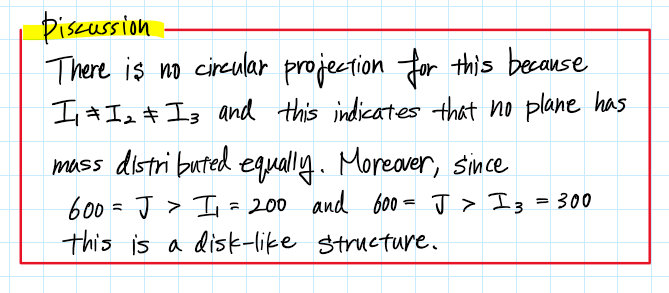 Discussion
There is no circular projection for this because
I₁ ≠ I₂ ≠ I₃ and this indicates that no plane has
mass distributed equally. Moreover, since
600 = J > I₁ = 200 and 600 = J > I₃ = 300
this is a disk-like structure.